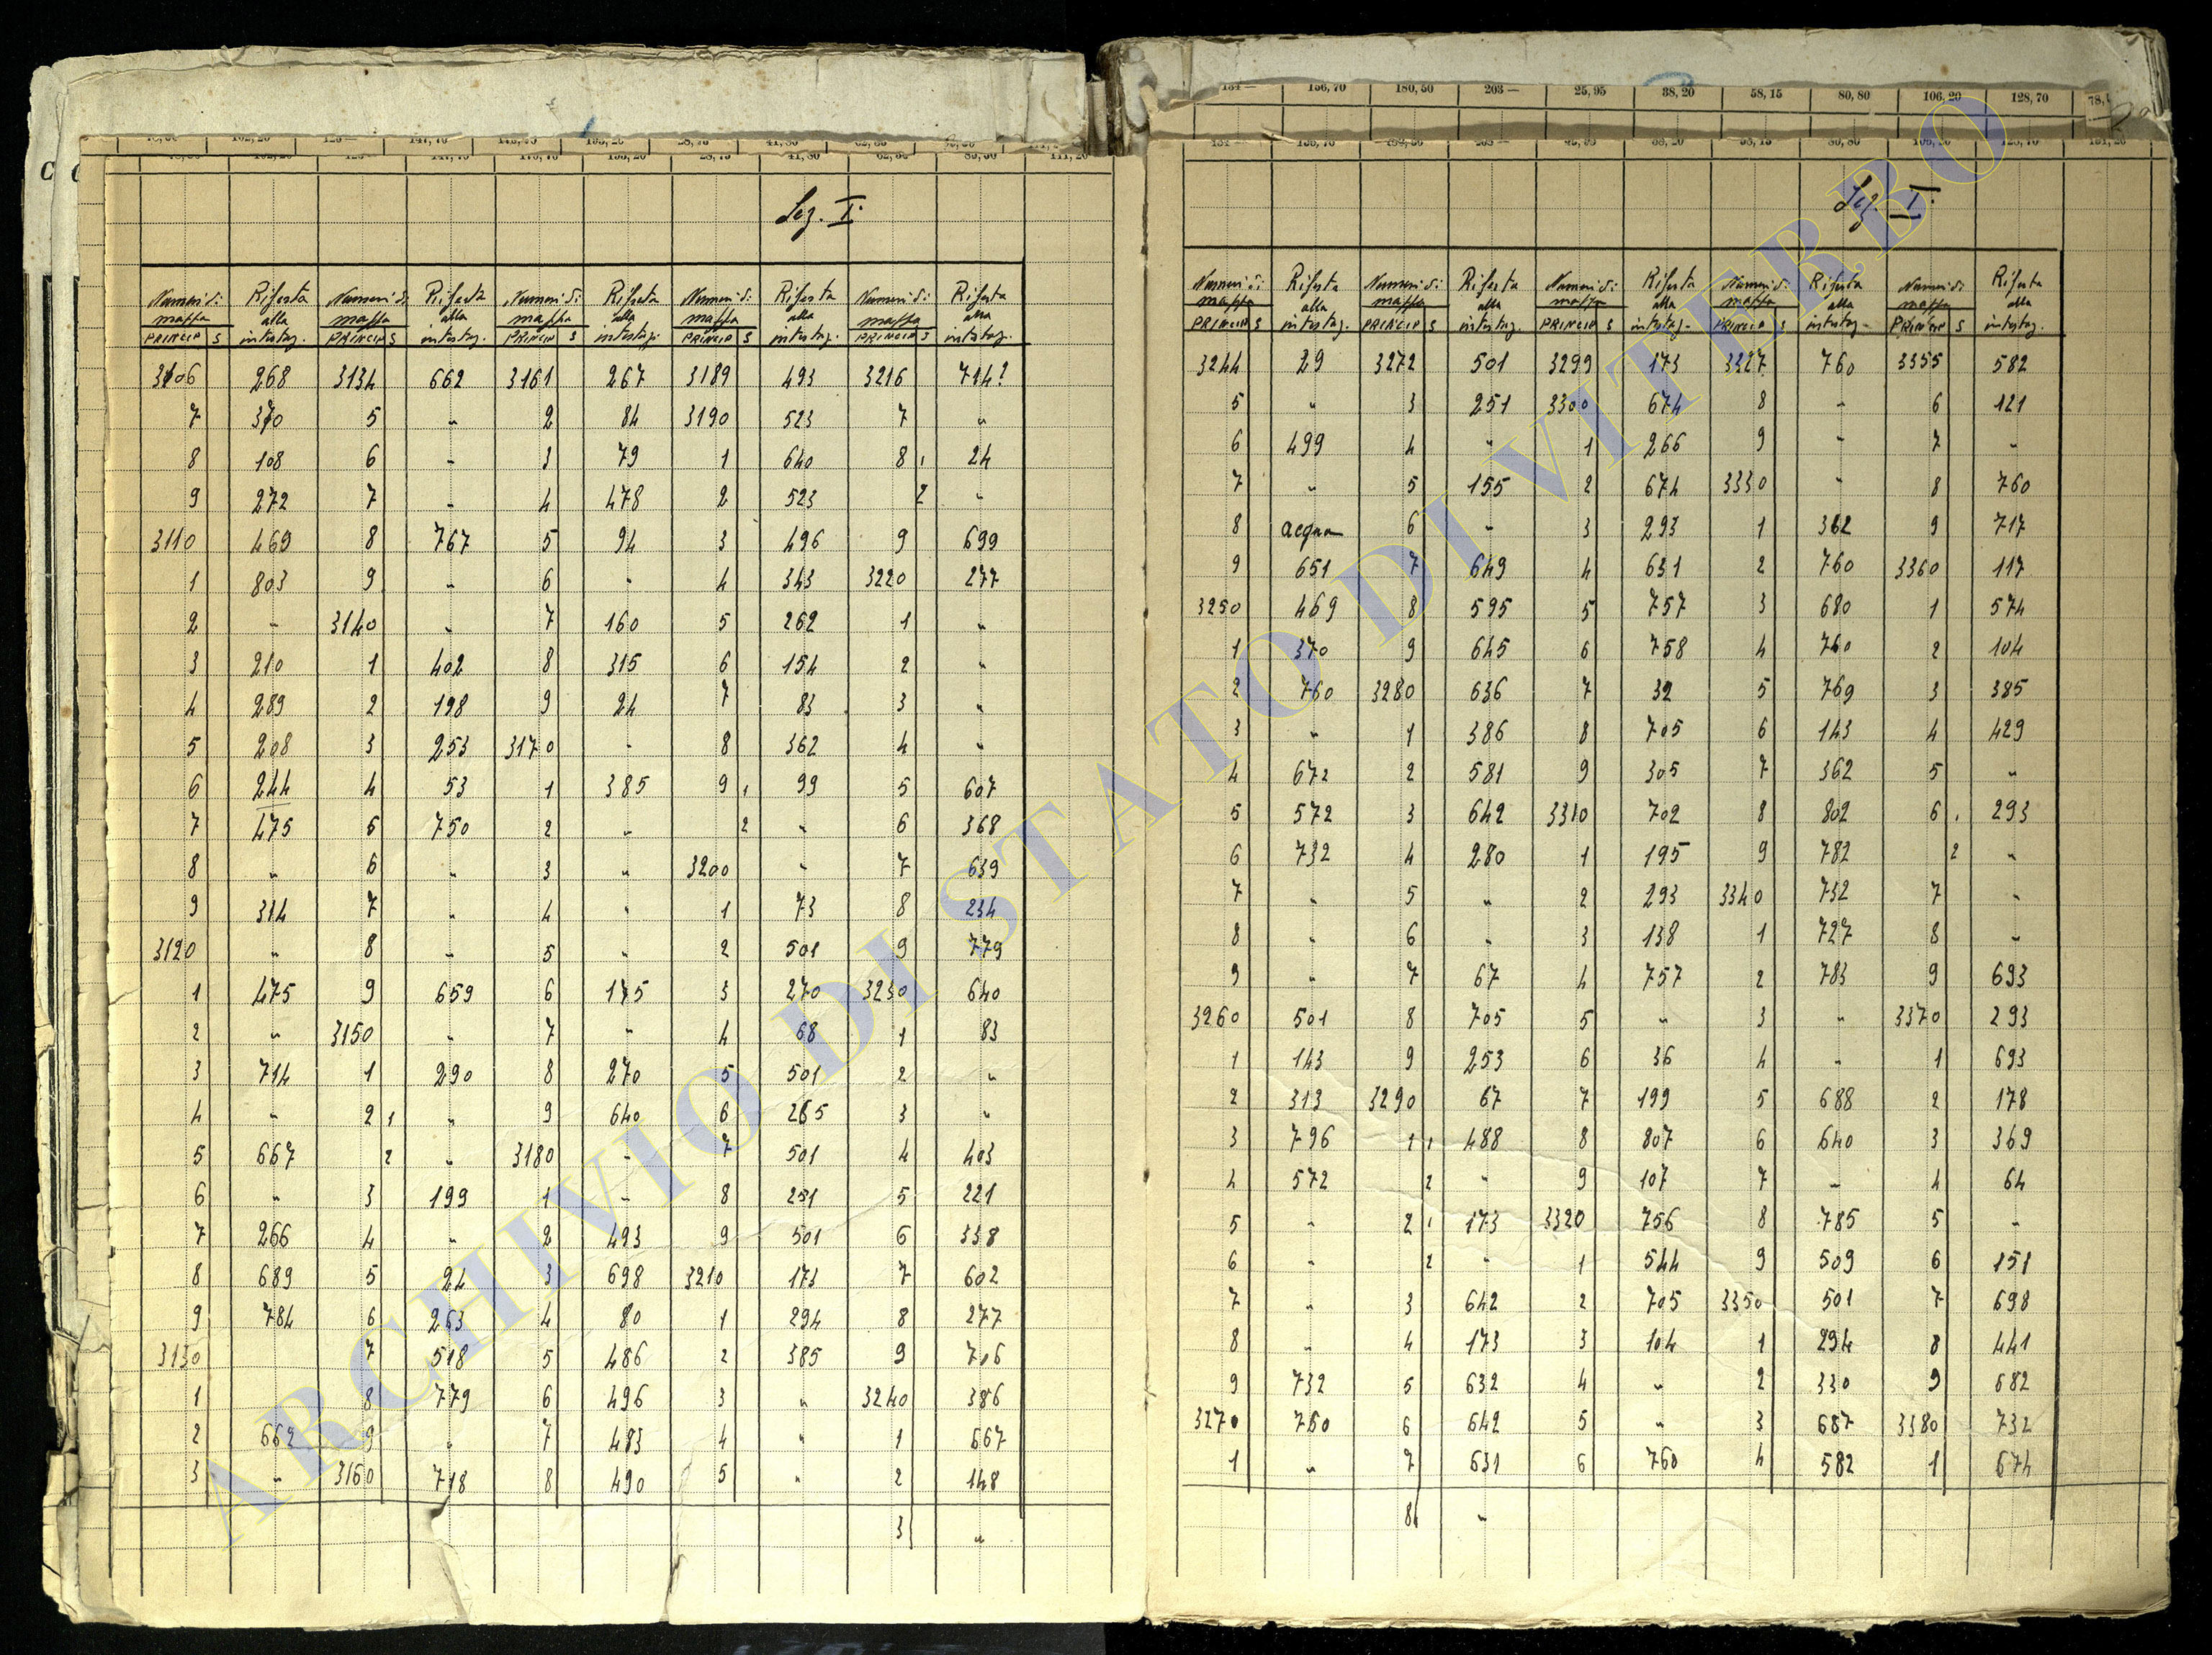 134 — 156,70 180,50 203 — 25,95 38,20 58,15 80,80 106,20 128,70
Sez. I.
Numeri di mappa Riferta alla intestaz. Numeri di mappa Riferta alla intestaz. Numeri di mappa Riferta alla intestaz. Numeri di mappa Riferta alla intestaz. Numeri di mappa Riferta alla intestaz.
PRINCIP S PRINCIP S PRINCIP S PRINCIP S PRINCIP S
3106 268 3134 662 3161 267 3189 493 3216 714?
7 370 5 " 2 84 3190 523 7 "
8 108 6 " 3 79 1 640 8 1 24
9 272 7 " 4 478 2 523 2 "
3110 469 8 767 5 94 3 496 9 699
1 803 9 " 6 " 4 343 3220 277
2 " 3140 " 7 160 5 262 1 "
3 210 1 402 8 315 6 154 2 "
4 289 2 198 9 24 7 83 3 "
5 208 3 253 3170 " 8 362 4 "
6 244 4 53 1 385 9 1 99 5 607
7 475 5 750 2 " 2 " 6 368
8 " 6 " 3 " 3200 " 7 639
9 314 7 " 4 " 1 73 8 234
3120 " 8 " 5 " 2 501 9 779
1 475 9 659 6 175 3 270 3230 640
2 " 3150 " 7 " 4 68 1 83
3 714 1 290 8 270 5 501 2 "
4 " 2 1 " 9 640 6 265 3 "
5 667 2 " 3180 " 7 501 4 403
6 " 3 199 1 " 8 251 5 221
7 266 4 " 2 493 9 501 6 338
8 689 5 24 3 698 3210 173 7 602
9 784 6 263 4 80 1 294 8 277
3130 7 518 5 486 2 385 9 706
1 8 779 6 496 3 " 3240 386
2 662 9 " 7 483 4 " 1 667
3 " 3160 718 8 490 5 " 2 148
3 "
Sez. I.
Numeri di mappa Riferta alla intestaz. Numeri di mappa Riferta alla intestaz. Numeri di mappa Riferta alla intestaz. Numeri di mappa Riferta alla intestaz. Numeri di mappa Riferta alla intestaz.
PRINCIP S PRINCIP S PRINCIP S PRINCIP S PRINCIP S
3244 29 3272 501 3299 173 3327 760 3355 582
5 " 3 251 3300 674 8 " 6 121
6 499 4 " 1 266 9 " 7 "
7 " 5 155 2 674 3330 " 8 760
8 acqua 6 " 3 293 1 362 9 717
9 651 7 649 4 631 2 760 3360 117
3250 469 8 595 5 757 3 680 1 574
1 370 9 645 6 758 4 760 2 104
2 760 3280 636 7 32 5 769 3 385
3 " 1 386 8 705 6 143 4 429
4 672 2 581 9 305 7 362 5 "
5 572 3 642 3310 702 8 802 6 1 293
6 732 4 280 1 195 9 782 2 "
7 " 5 " 2 293 3340 732 7 "
8 " 6 " 3 138 1 727 8 "
9 " 7 67 4 757 2 783 9 693
3260 501 8 705 5 " 3 " 3370 293
1 143 9 253 6 36 4 " 1 693
2 313 3290 67 7 199 5 688 2 178
3 796 1 1 488 8 807 6 640 3 369
4 572 2 " 9 107 7 " 4 64
5 " 2 1 173 3320 756 8 785 5 "
6 " 2 " 1 544 9 509 6 151
7 " 3 642 2 705 3350 501 7 698
8 " 4 173 3 104 1 294 8 441
9 732 5 632 4 " 2 330 9 682
3270 760 6 642 5 " 3 687 3380 732
1 " 7 631 6 760 4 582 1 674
8 "
ARCHIVIO DI STATO DI VITERBO